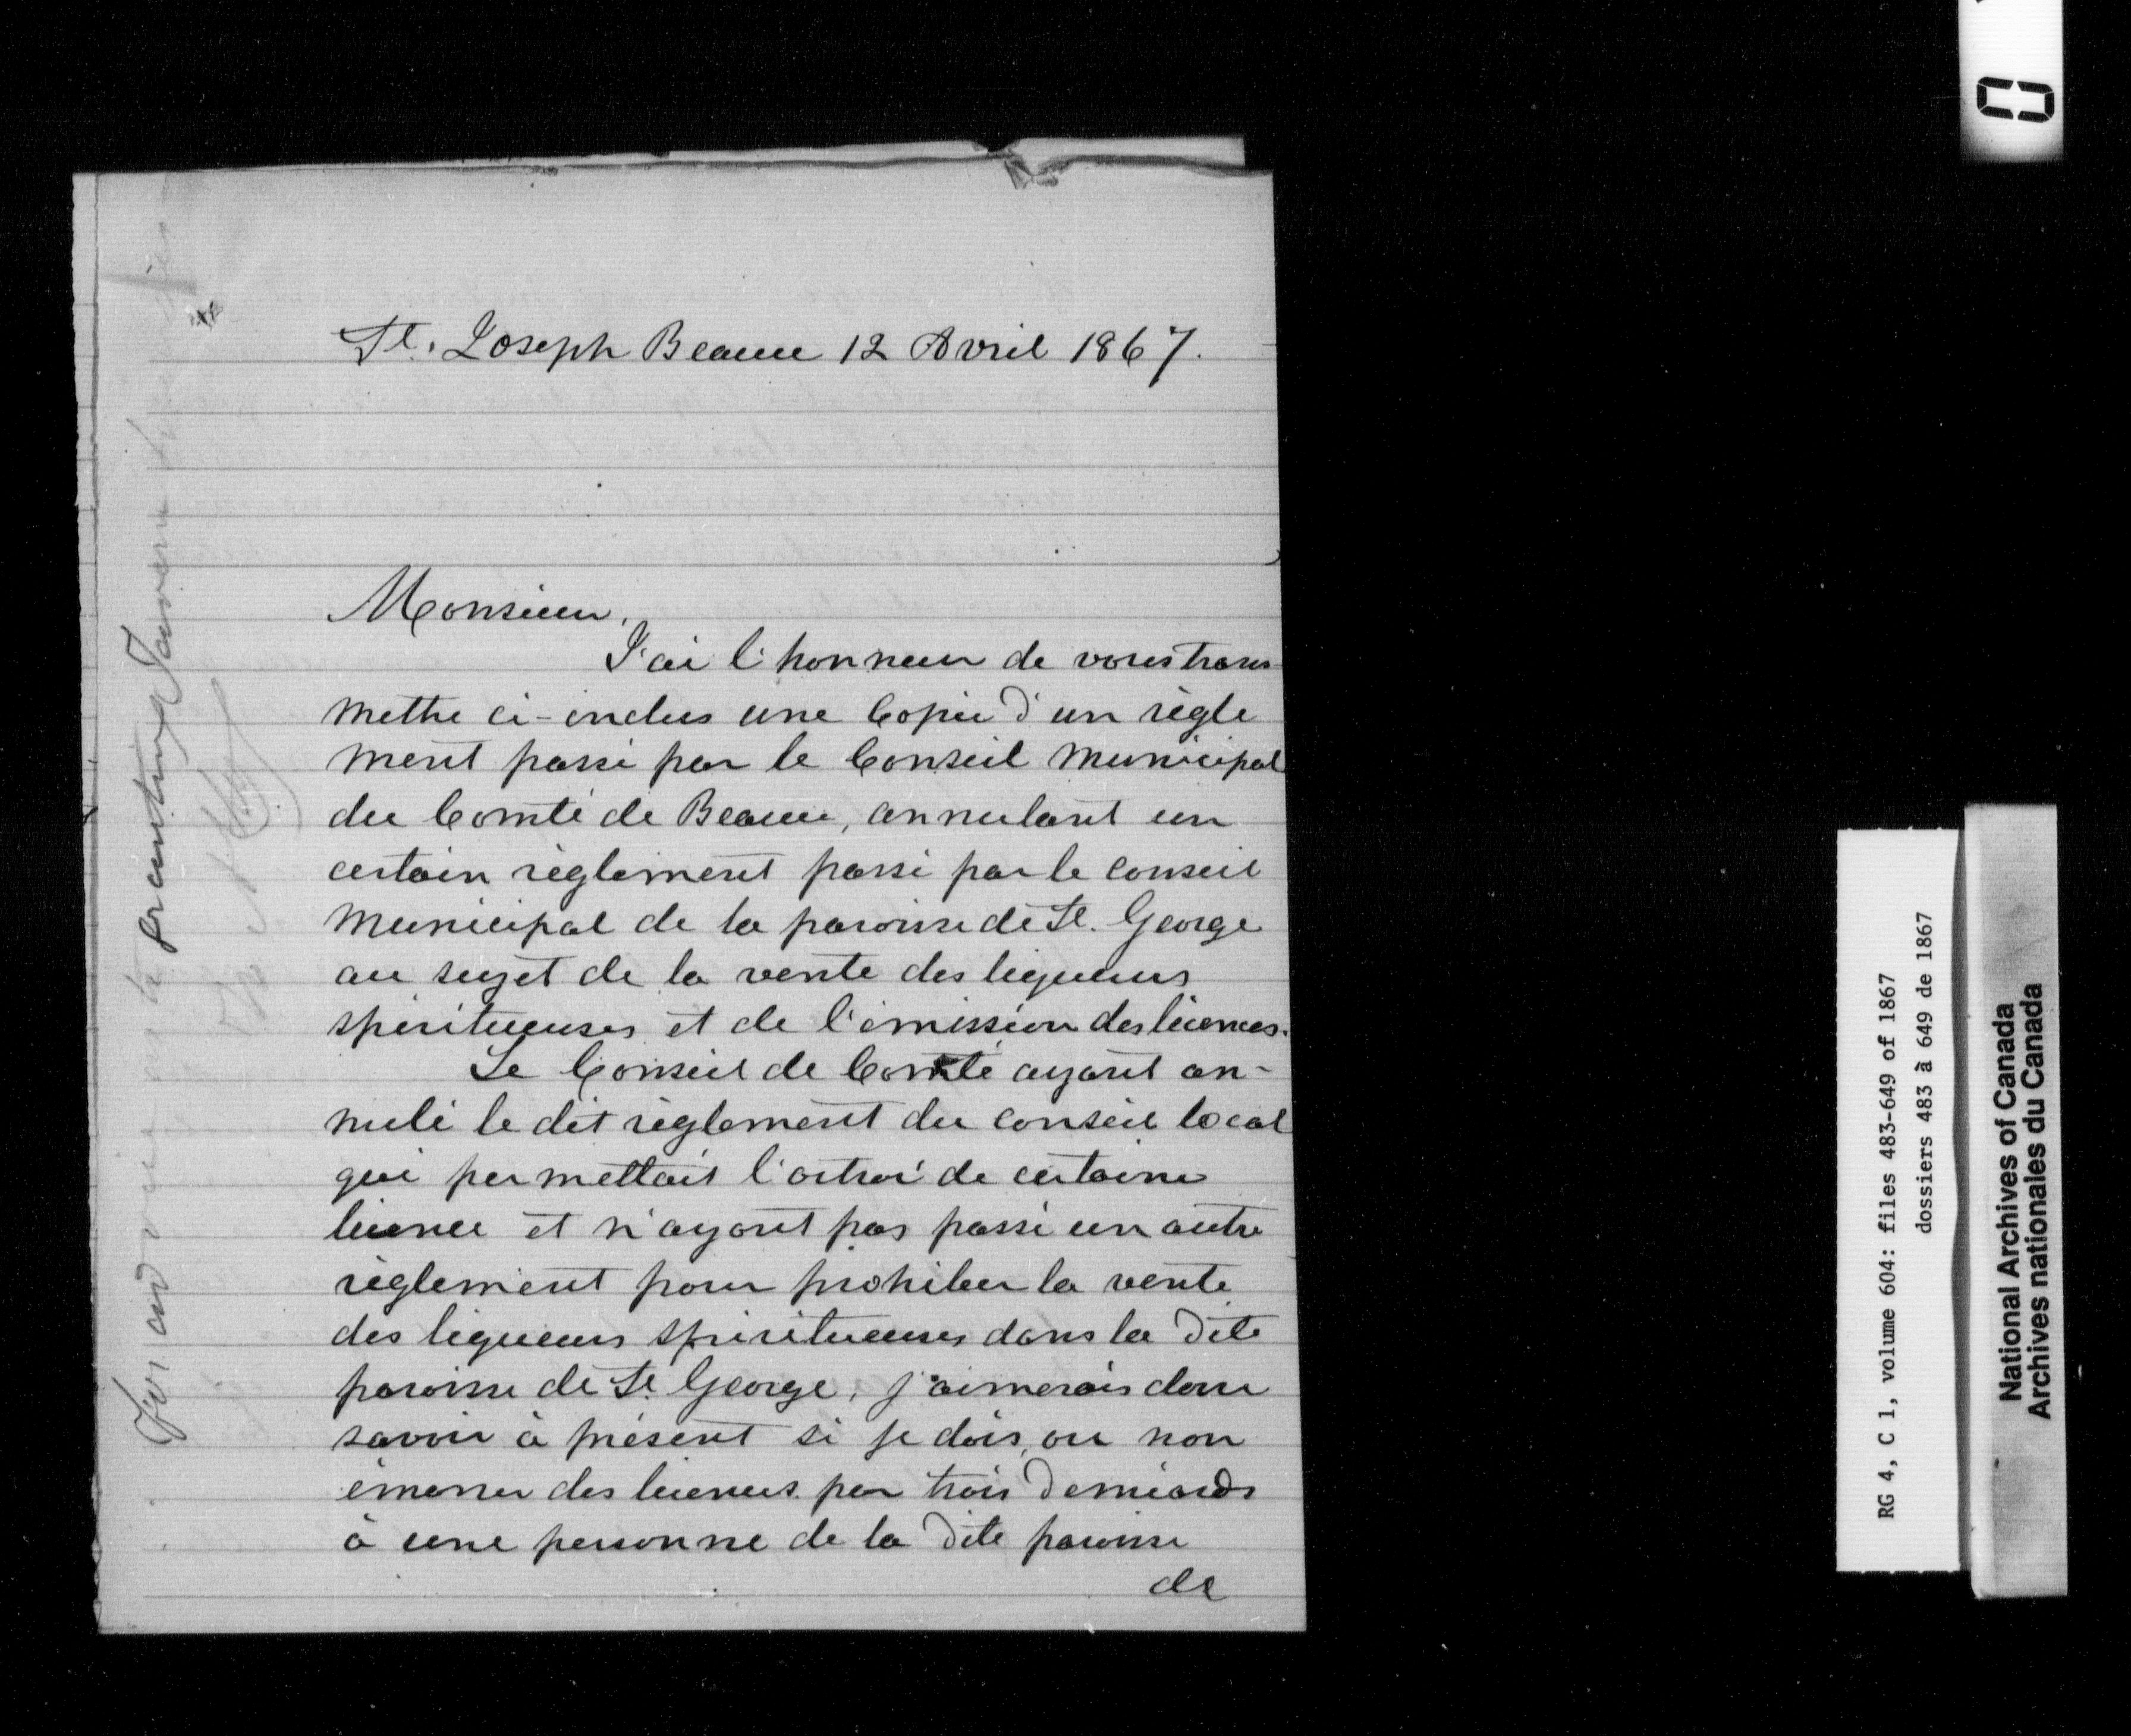 St. Joseph Beauce 12 Avril 1867.
Monsieur,
J'ai l'honneur de vous trans-
mettre ci-inclus une Copie d'un règle
ment passé par le Conseil Municipal
du Comté de Beauce, annulant un
certain règlement passé par le conseil
Municipal de la paroisse de St. George
au sujet de la vente des liqueurs
spiritueuses et de l'émission des licences.
Le Conseil de Comté ayant an-
nulé le dit règlement du conseil local
qui permettait l'octroi de certaine
licence et n'ayant pas passé un autre
règlement pour prohiber la vente
des liqueurs spiritueuses dans la dite
paroisse de St George, j'aimerais donc
savoir à présent si je dois, ou non
émaner des licences par trois demiards
à une personne de la dite paroisse
de
For
RG 4, C 1, volume 604: files 483-649 of 1867
dossiers 483 à 649 de 1867
National Archives of Canada
Archives nationales du Canada